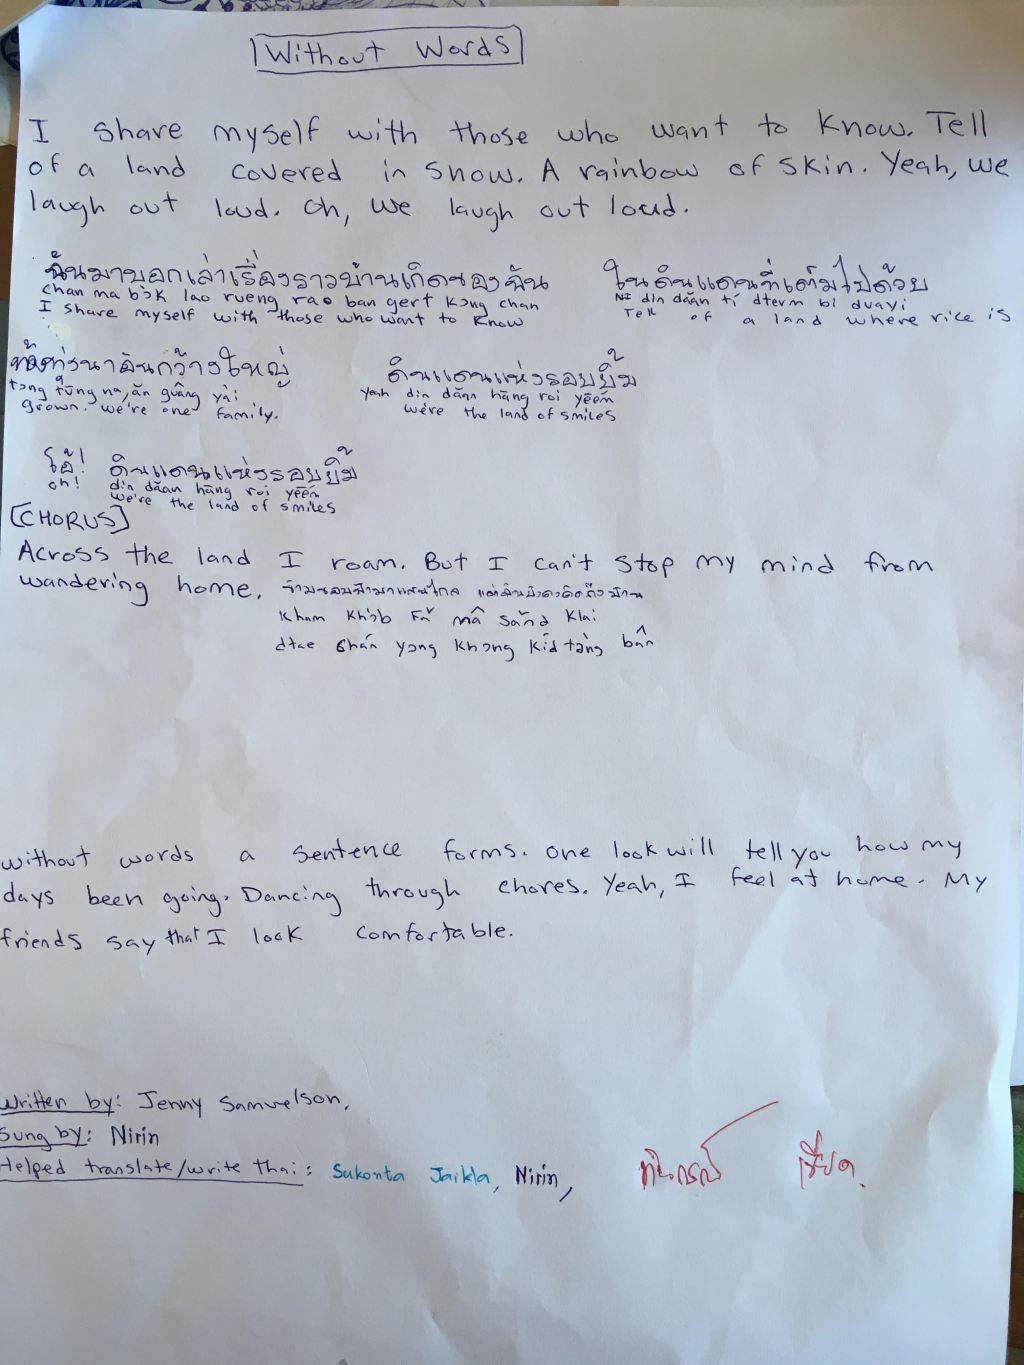 Without Words
I share myself with those who want to know. Tell
of a land covered in snow. A rainbow of skin. Yeah, we
laugh out loud. Oh, we laugh out loud.
ฉันมาบอกเล่าเรื่องราวบ้านเกิดของฉัน ในดินแดนที่เต็มไปด้วย
chan ma bɔ̀k lao rueng rao ban gert kɔng chan Ni din dăan tí dterm bi duayi
I share myself with those who want to know Tell of a land where rice is
ท้องทุ่งนาอันกว้างใหญ่ ดินแดนแห่งรอยยิ้ม
tɔng tūng na, ăn guâng yài yeah din dăan hāng roi yēēm
grown. we're one family. we're the land of smiles
โอ้! ดินแดนแห่งรอยยิ้ม
oh! din dăan hāng roi yēēm
we're the land of smiles
[CHORUS]
Across the land I roam. But I can't stop my mind from
wandering home. ข้ามขอบฟ้ามาแสนไกล แต่ฉันยังคงคิดถึงบ้าน
Kham Khɔ̀b Fă mâ săng Klai
dtae chán yɔng khɔng kíd tàng bân
without words a sentence forms. One look will tell you how my
days been going. Dancing through chores. Yeah, I feel at home. My
friends say that I look comfortable.
Written by: Jenny Samuelson.
Sung by: Nirin
Helped translate/write thai: Sukonta Jaikla, Nirin,